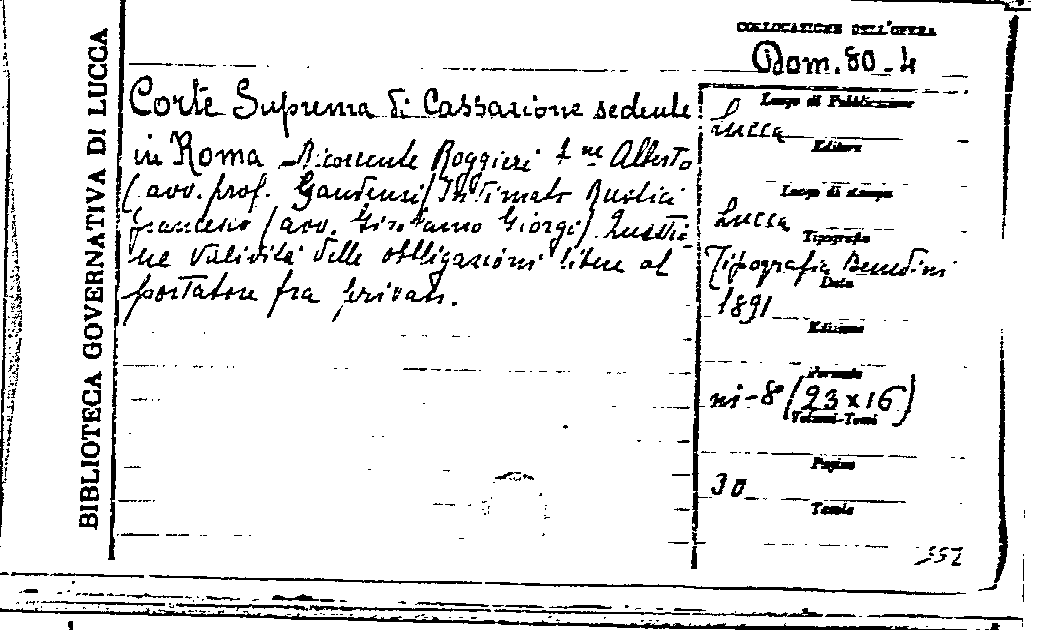 BIBLIOTECA GOVERNATIVA DI LUCCA
COLLOCAZIONE DELL'OPERA
Dom. 80-4
Corte Suprema di Cassazione sedente
in Roma Ricorrente Roggieri Alberto
(avv. prof. Gaudenzi) Intimato Rustici
Francesco (avv. Girolamo Giorgi). Questio-
ne Validità delle obbligazioni libere al
portatore fra privati.
Luogo di Pubblicazione
Lucca
Editore
Luogo di stampa
Lucca
Tipografia
Tipografia Benedini
Data
1891
Edizione
Formato
in-8° (23x16)
Volumi-Tomi
Pagine
30
Tavole
552